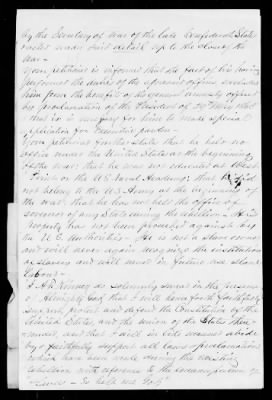 by the Secretary of War of the late Confederate States
under said detail up to the close of the
war—
Your petitioner is informed that the fact of his having
performed the duties of the aforesaid office, excludes
him from the benefit of the general amnesty offered
by proclamation of the President of 29th May and
that it is necessary for him to make special
application for Executive pardon—
Your petitioner further states that he held no
office under the United States at the beginning
of the war; that he was not educated at West
Point or the U.S. Naval Academy; that he did
not belong to the U.S. Army at the beginning of
the war; that he has not held the office of
governor of any State during the rebellion. His
property has not been proceeded against by
the U.S. Authorities— He is not a slave owner
and will never again recognize the institution
of slavery and will must in future use slave
labour—
I A. R. do solemnly swear in the presence
of Almighty God, that I will henceforth faithfully
support, protect and defend the Constitution of the
United States, and the union of the States there-
under, and that I will in like manner abide
by & faithfully support all laws & proclamations
which have been made during the existing
rebellion with reference to the emancipation of
slaves— So help me God"